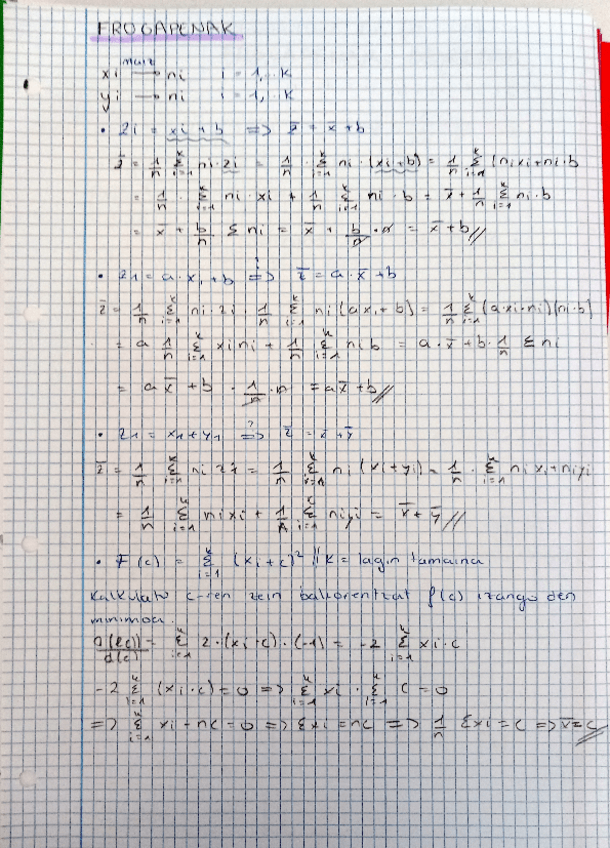 FROGAPENAK
maiz
xi → ni i = 1,...k
yi → ni i = 1,...k
• zi = xi + b => z̄ = x̄ + b
z̄ = 1/n Σ_{i=1}^{k} ni · zi = 1/n · Σ_{i=1}^{k} ni · (xi + b) = 1/n Σ_{i=1}^{k} (ni xi + ni · b
= 1/n · Σ_{i=1}^{k} ni · xi + 1/n Σ_{i=1}^{k} ni · b = x̄ + 1/n Σ_{i=1}^{k} ni · b
= x̄ + b/n Σ ni = x̄ + b/n · n = x̄ + b //
• zi = a · xi + b ?=> z̄ = a · x̄ + b
z̄ = 1/n Σ_{i=1}^{k} ni · zi · 1/n Σ_{i=1}^{k} ni (axi + b) = 1/n Σ_{i=1}^{k} (a · xi · ni)(ni · b)
= a 1/n Σ_{i=1}^{k} xi ni + 1/n Σ_{i=1}^{k} ni b = a · x̄ + b · 1/n Σ ni
= a x̄ + b · 1/n · n = a x̄ + b //
• z1 = x1 + y1 ?=> z̄ = x̄ + ȳ
z̄ = 1/n Σ_{i=1}^{k} ni zi = 1/n Σ_{i=1}^{k} ni (xi + yi) = 1/n · Σ_{i=1}^{k} ni xi + ni yi
= 1/n Σ_{i=1}^{k} ni xi + 1/n Σ_{i=1}^{k} ni yi = x̄ + ȳ //
• F(c) = Σ_{i=1}^{k} (xi + c)² // k = lagin tamaina
Kalkulatu c-ren zein baliorentzat f(c) izango den
minimoa.
d(f(c))/d(c) = Σ_{i=1}^{k} 2 · (xi - c) · (-1) = -2 Σ_{i=1}^{k} xi - c
-2 Σ_{i=1}^{k} (xi - c) = 0 => Σ_{i=1}^{k} xi - Σ_{i=1}^{k} c = 0
=> Σ_{i=1}^{k} xi - nc = 0 => Σxi = nc => 1/n Σxi = c => x̄ = c //